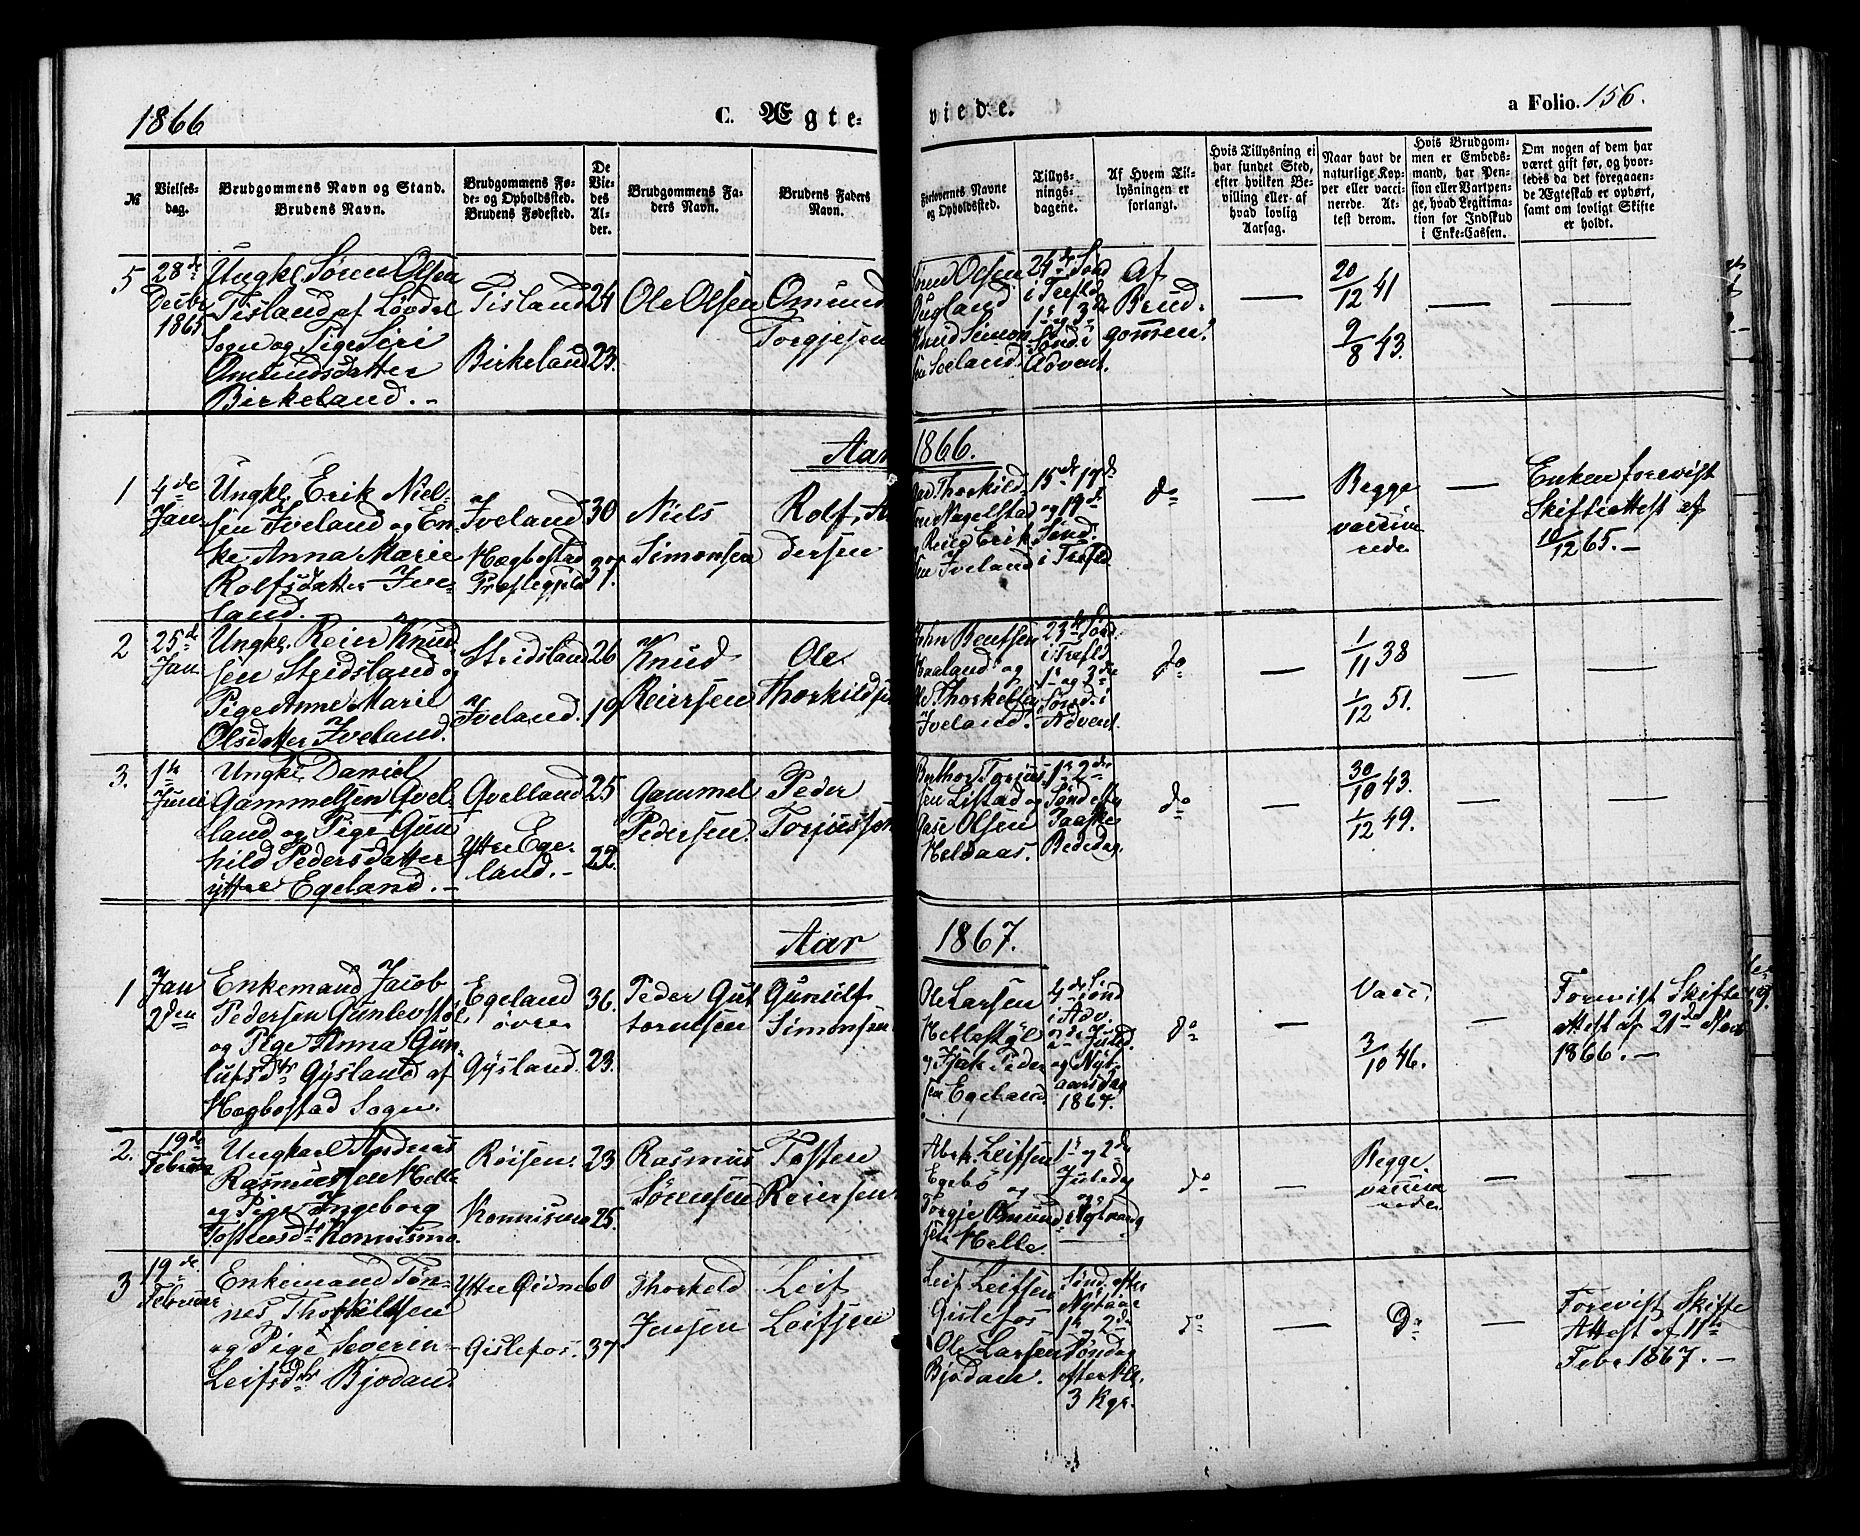 1866
C. Ægte-
viede.
a Folio. 156.
№
Vielses-
dag.
Brudgommens Navn og Stand.
Brudens Navn.
Brudgommens Fø-
de- og Opholdssted.
Brudens Fødested.
De
Vie-
des
Al-
der.
Brudgommens Fa-
ders Navn.
Brudens Faders
Navn.
Forlovernes Navne
og Opholdssted.
Tillys-
nings-
dagene.
Af Hvem Til-
lysningen er
forlangt.
Hvis Tillysning ei
har fundet Sted,
efter hvilken Be-
villing eller af
hvad lovlig
Aarsag.
Naar havt de
naturlige Kop-
per eller vacci-
nerede. At-
test derom.
Hvis Brudgom-
men er Embeds-
mand, har Pen-
sion eller Vartpen-
ge, hvad Legitima-
tion for Indskud
i Enke-Cassen.
Om nogen af dem har
været gift før, og hvor-
ledes da det foregaaen-
de Ægteskab er ophørt,
samt om lovligt Skifte
er holdt.
5
28de
Decbr
1865
Ungkl. Søren Olsen
Tisland af Løvdal
Sogn og Pige Siri
Omundsdatter
Birkeland.
Tisland
Birkeland
24
23.
Ole Olsen
Omund
Torgjesen
Olsen
Knud Simon
24de Sønd
i Trefld
1ste og 3de
Sønd. i
Advent.
Af
Brud-
gommen.
20/12 41
9/8 43.
Aar 1866.
1
4de
Jan
Ungkl. Erik Niel-
sen Iveland og En-
ke Anna Marie
Rolfsdatter Ive-
land.
Iveland
Hægbostad
Præstegjeld
30
37.
Niels
Simonsen
Rolf
dersen
Thorkild
Nagelstad
Erik
Iveland
15de 17de
og 19de
Sønd.
i Trefld
do
Begge
vaccine
rede
Enken forevist
Skifteattest af
10/12 65.
2
25de
Jan
Ungkl. Reier Knud
sen Stridsland og
Pige Anne Marie
Olsdatter Iveland.
Stridsland
Iveland.
26
19
Knud
Reiersen
Ole
Thorkildsen
John Bentsen
Haaland og
Iveland.
23de Sønd
i Trefld
1ste og 2de
Sønd. i
Advent.
do
1/11 38
1/12 51.
3.
1ste
Juni
Ungkl. Daniel
Gammelsen Qvel-
land og Pige Gun
hild Pedersdatter
ytre Egeland.
Qvelland
Ytre Ege-
land.
25
22.
Gammel
Pedersen.
Peder
Torjussen
Listad og
Aase Olsen
Heldaas.
1ste 2de
Sønd efter
Paaske
Bededag.
do
30/10 43.
1/12 49.
Aar 1867.
1
Jan
2den
Enkemand Jacob
Pedersen Gunlevstøl
og Pige Anna Gun-
lufsdtr Gysland af
Hægbostad Sogn.
Egeland
øvre
Gysland.
36.
23.
Peder Gut
tormsen
Gunulf
Simonsen
Ole Larsen
Hellestøl
og Isak Peder
sen Egeland
4de Sønd
i Adv.
2de Juled.
og Nyt-
aarsdag
1867.
do
Vacc.
3/10 46.
Forevist Skifte
attest af 21de Nov
1866.
2.
19de
Februar
Ungkarl Andreas
Rasmussen Helle
og Pige Ingeborg
Tostensdtr Konnismo
Røisen.
Konnismo
23
25.
Rasmus
Sørensen
Tosten
Reiersen
Leifsen
Egebø og
Torgje Omund
sen Helle
1ste og 2de
Juledag
Nytaars
do
Begge
vaccine
rede
3
19de
Februar
Enkemand Tøn-
nes Thorkildsen
og Pige Severin-
Leifsdtr Bjodan.
Ytre Øidne
Gislefos.
60
37
Thorkeld
Jensen
Leif
Leifsen
Leif Leifsen
Gislefos
Ole Larsen
Bjodan.
Sønd. efter
Nytaar
1ste og 2de
Søndag
efter Hlg.
3 Kgr.
do
Do
Forevist Skifte
Attest af 11te
Febr 1867.